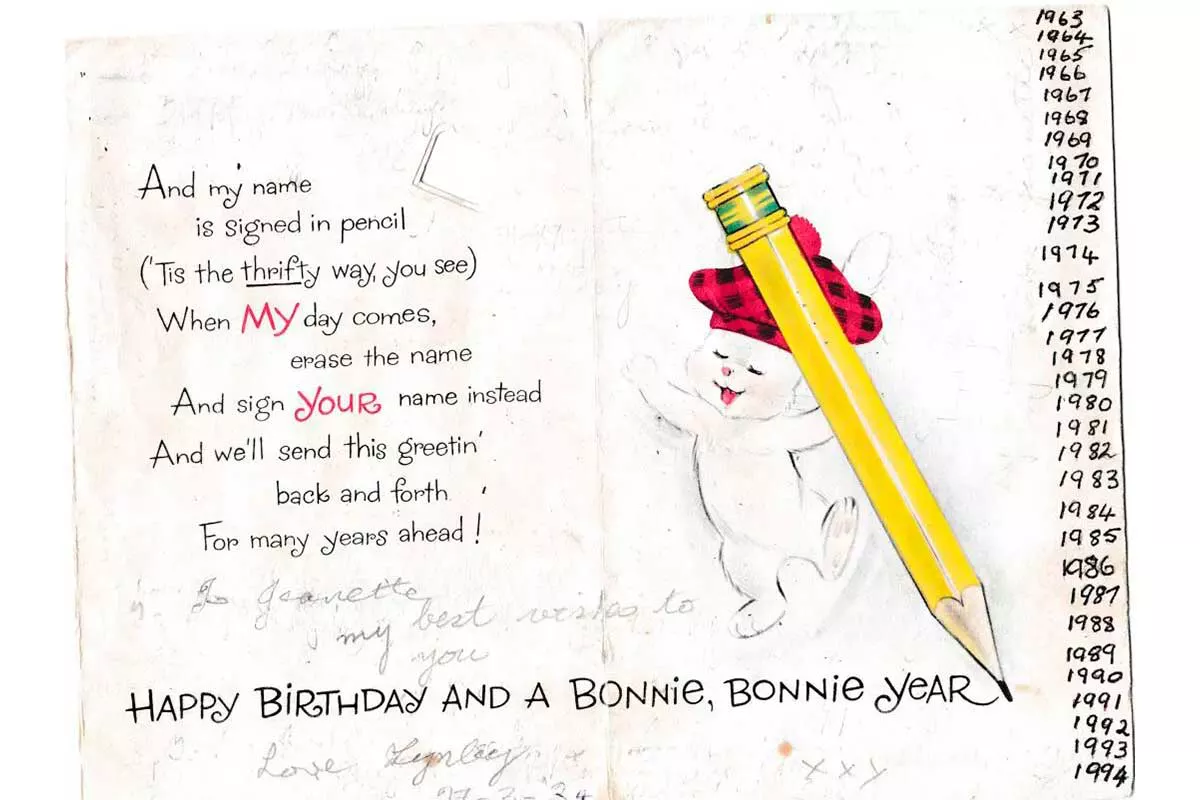 And my name
is signed in pencil
('Tis the thrifty way, you see)
When MY day comes,
erase the name
And sign YOUR name instead
And we'll send this greetin'
back and forth
For many years ahead!
To Jeanette
my best wishes to
you
HAPPY BIRTHDAY AND A BONNIE, BONNIE YEAR
Love Lynley
x x y
1963
1964
1965
1966
1967
1968
1969
1970
1971
1972
1973
1974
1975
1976
1977
1978
1979
1980
1981
1982
1983
1984
1985
1986
1987
1988
1989
1990
1991
1992
1993
1994